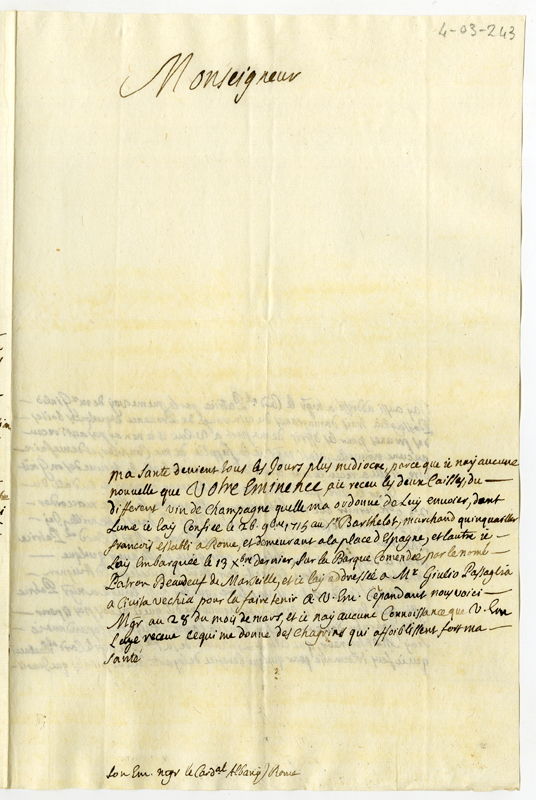 4-03-243
Monseigneur
ma Santé devient tous les Jours plus mediocre, parce que ie nay aucune
nouvelle que Votre Eminence aie receu les deux Caisses, du
different vin de Champagne quelle ma ordonné de Luy envoier, dont
Lune ie lay Confiée le 28. 9bre 1715 au Sr Barthelot, marchand quinquaillier
francois establi a Rome, et demeurant ala place d'Espagne, et lautre ie
Lay Embarquée le 13 xbre dernier, sur la Barque Comendée par le nomé
Patron Beaudeuf de Marseille, et ie lay addressée a Mr Giulio Passaglia
a Civita vechia pour la faire tenir a V. Em. Cependant nous voici
Mgr au 28 du mois de mars, et ie nay aucune Connoissance que V. Em
Laye receue ce qui me donne des Chagrins qui affoiblissent fort ma
Santé
Son Em. mgr le Cardal Albany / Rome